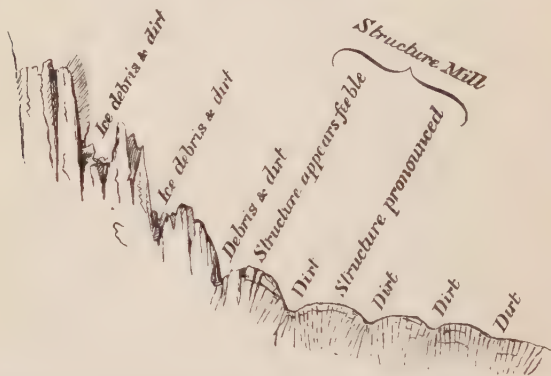 Ice debris & dirt
Ice debris & dirt
Debris & dirt
Structure appears feeble
Structure Mill
Structure pronounced
Dirt
Dirt
Dirt
Dirt